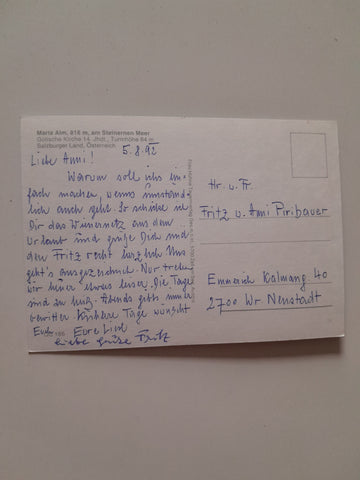 Maria Alm, 816 m, am Steinernen Meer
Gotische Kirche 14. Jhdt., Turmhöhe 84 m
Salzburger Land, Österreich
5.8.92
Liebe Anni!
Warum soll ich ein-
fach machen, wenns umständ-
lich auch geht. So schicke ich
Dir das Wienernetz aus dem
Urlaub und grüße Dich und
den Fritz recht herzlich. Uns
geht's ausgezeichnet. Nur
wir etwas leser. Die Tage
sind zu kurz. Abends geht's immer
Tage wünscht
Eure
Liebe Grüße Fritz
Hr. u. Fr.
Fritz u. Anni Piribauer
Emmerich Kalmang 40
2700 Wr Neustadt